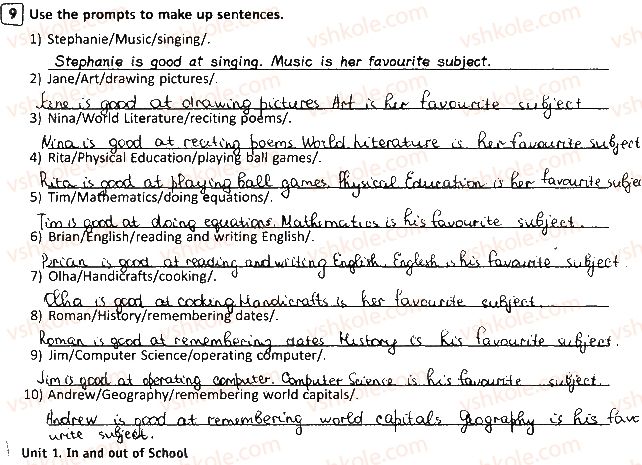 9 Use the prompts to make up sentences.
1) Stephanie/Music/singing/.
Stephanie is good at singing. Music is her favourite subject.
2) Jane/Art/drawing pictures/.
Jane is good at drawing pictures. Art is her favourite subject
3) Nina/World Literature/reciting poems/.
Nina is good at reciting poems. World Literature is her favourite subject
4) Rita/Physical Education/playing ball games/.
Rita is good at playing ball games. Physical Education is her favourite subje
5) Tim/Mathematics/doing equations/.
Tim is good at doing equations. Mathematics is his favourite subject.
6) Brian/English/reading and writing English/.
Brian is good at reading and writing English. English is his favourite subject.
7) Olha/Handicrafts/cooking/.
Olha is good at cooking. Handicrafts is her favourite subject.
8) Roman/History/remembering dates/.
Roman is good at remembering dates. History is his favourite subject.
9) Jim/Computer Science/operating computer/.
Jim is good at operating computer. Computer Science is his favourite subject.
10) Andrew/Geography/remembering world capitals/.
Andrew is good at remembering world capitals. Geography is his favo
urite subject.
Unit 1. In and out of School
vshkole.com